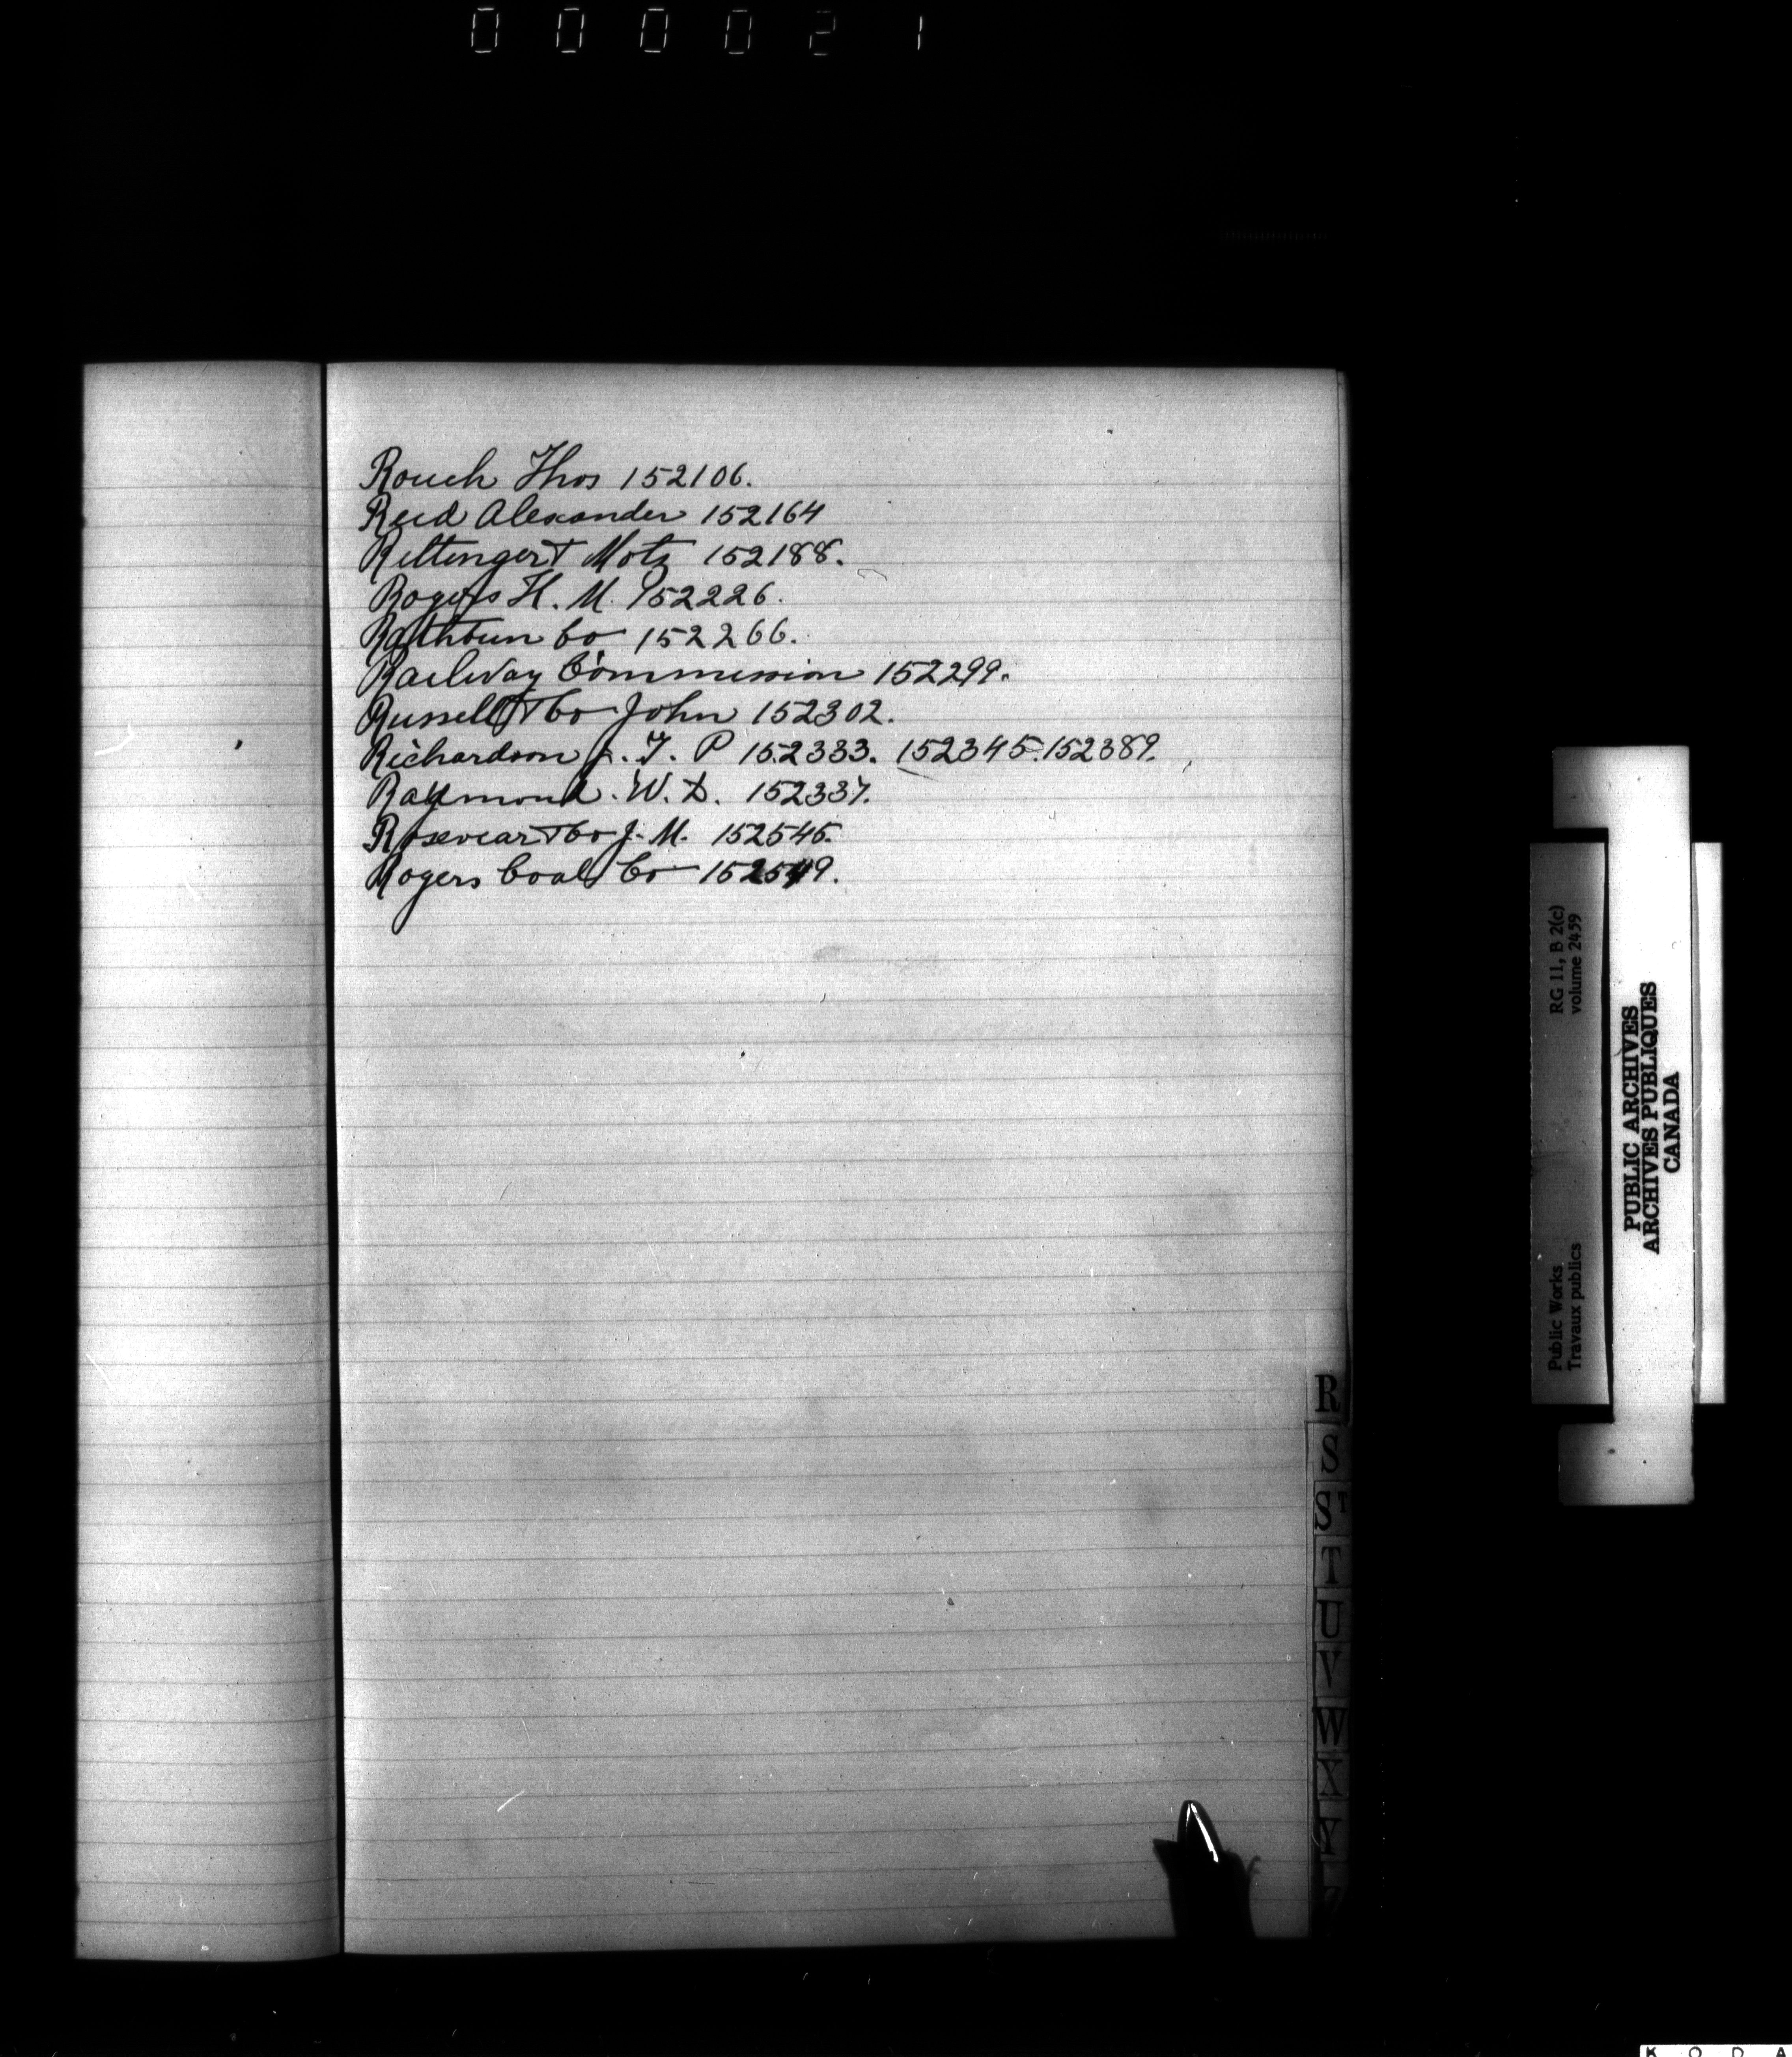 000021
Rouch Thos 152106.
Reid Alexander 152164
Rittinger & Motz 152188.
Rogers H. M. 152226.
Rathbun Co 152266.
Railway Commission 152299.
Russell & Co John 152302.
Richardson J. T. P 152333. 152345. 152389.
Raymond. W. D. 152337.
Rosevear & Co J. M. 152545.
Rogers Coal Co 152549.
R
S
ST
T
U
V
W
X
Y
Z
Public Works RG 11, B 2(c)
Travaux publics volume 2459
PUBLIC ARCHIVES
ARCHIVES PUBLIQUES
CANADA
K O D A